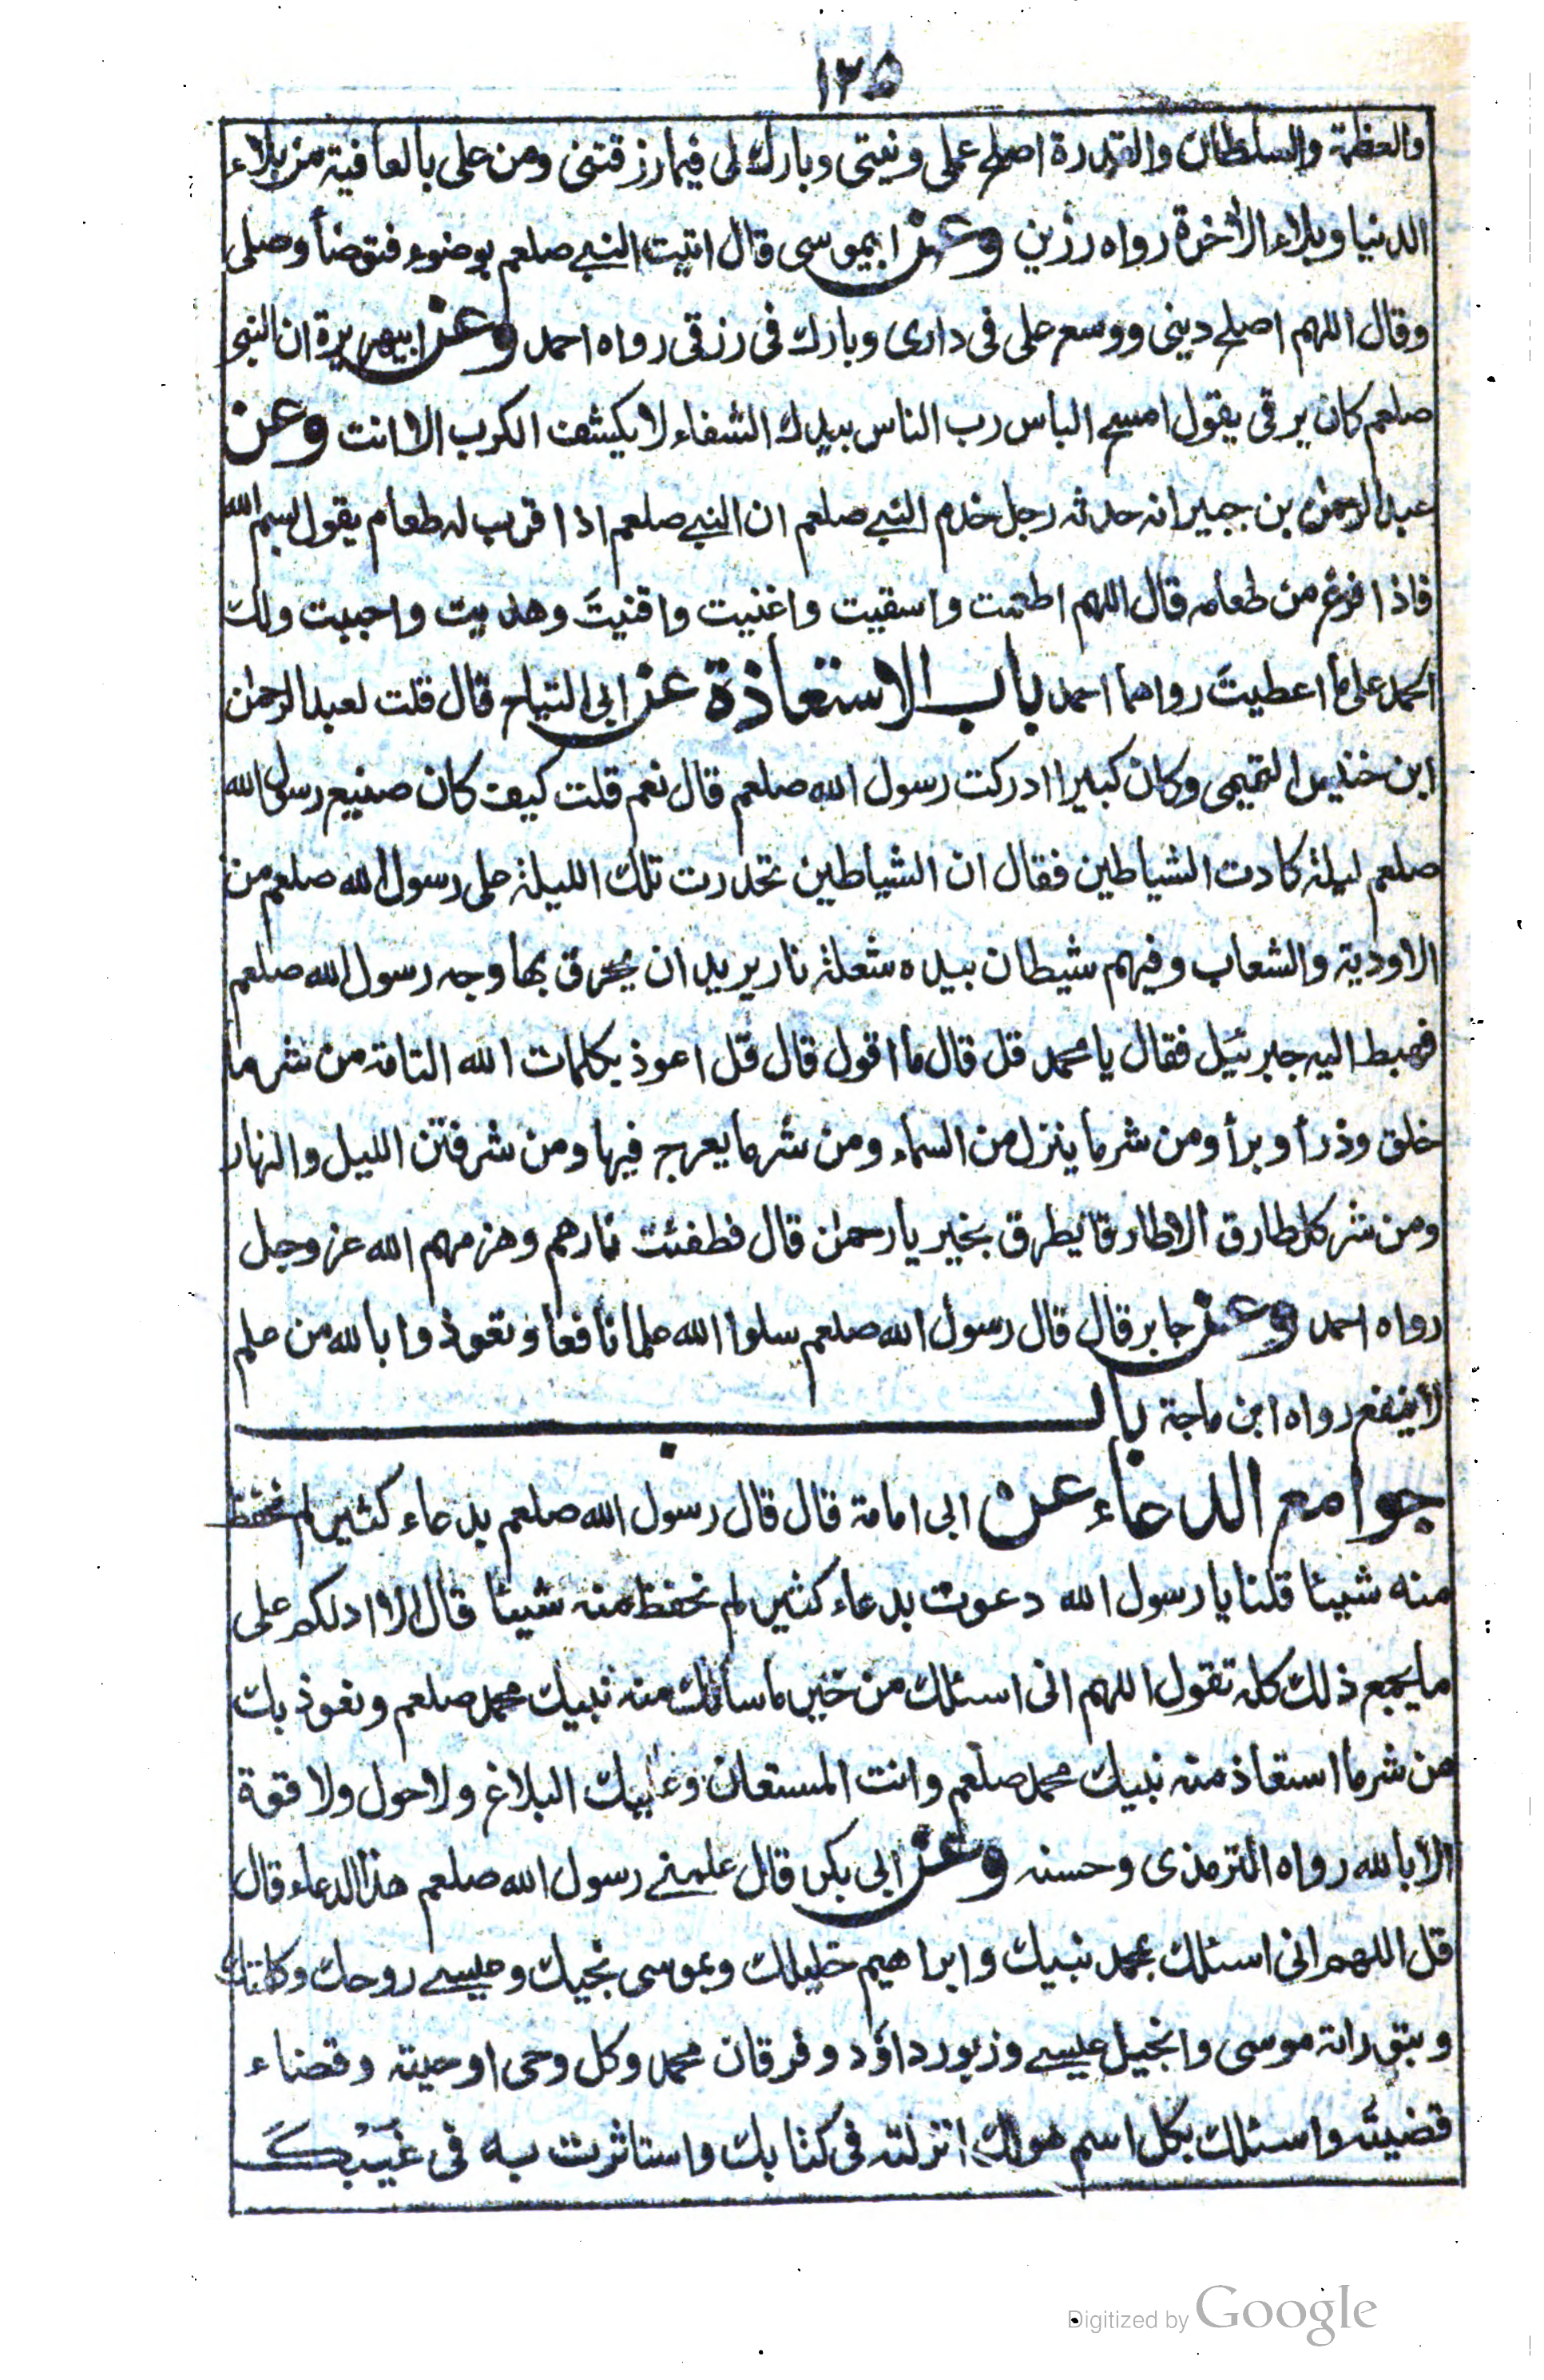 ١٢٥
والعظمة والسلطان والقدرة اصلح عملى ونيتى وبارك لى فيما رزقتنى ومن على بالعافية من بلاء
الدنيا وبلاء الأخرة رواه رزين وعن ابيموسى قال اتيت النبي صلعم بوضوء فتوضأ وصلى
وقال اللهم اصلح دينى ووسع على فى دارى وبارك فى رزقى رواه احمد وعن ابيهريرة ان النبى
صلعم كان يرقى يقول امسح الباس رب الناس بيدك الشفاء لا يكشف الكرب الا انت وعن
عبدالرحمٰن بن جبير انه حدثه رجل خدم النبي صلعم ان النبي صلعم اذا قرب له طعام يقول بسم الله
فاذا فرغ من طعامه قال اللهم اطعمت واسقيت واغنيت واقنيتَ وهديت واحييت ولك
الحمد على ما اعطيتَ رواهما احمد باب الاستعاذة عن ابى التياح قال قلت لعبدالرحمٰن
ابن خنبس التميمى وكان كبيرا ادركت رسول الله صلعم قال نعم قلت كيف كان صنيع رسول الله
صلعم ليلة كادت الشياطين فقال ان الشياطين تحدرت تلك الليلة على رسول الله صلعم من
الاودية والشعاب وفيهم شيطان بيده شعلة نار يريد ان يحرق بها وجه رسول الله صلعم
فهبط اليه جبرئيل فقال يا محمد قل قال ما اقول قال قل اعوذ بكلمات الله التامة من شر ما
خلق وذرأ وبرأ ومن شر ما ينزل من السماء ومن شر ما يعرج فيها ومن شر فتن الليل والنهار
ومن شر كل طارق الا طارقا يطرق بخير يا رحمٰن قال فطفئت نارهم وهزمهم الله عز وجل
رواه احمد وعن جابر قال قال رسول الله صلعم سلوا الله علما نافعا وتعوذوا بالله من علم
لا ينفع رواه ابن ماجة باب
جوامع الدعاء عن ابى امامة قال قال رسول الله صلعم بدعاء كثير لم نحفظ
منه شيئا قلنا يا رسول الله دعوت بدعاء كثير لم نحفظ منه شيئا قال الا ادلكم على
ما يجمع ذلك كله تقول اللهم انى اسئلك من خير ما سألك منه نبيك محمد صلعم ونعوذ بك
من شر ما استعاذ منه نبيك محمد صلعم وانت المستعان وعليك البلاغ ولا حول ولا قوة
الا بالله رواه الترمذى وحسنه وعن ابى بكر قال علمنے رسول الله صلعم هذا الدعاء قال
قل اللهم انى اسئلك بمحمد نبيك وابراهيم خليلك وبموسى نجيك وعيسے روحك وكلمتك
وبتوراة موسى وانجيل عيسے وزبور داؤد وفرقان محمد وكل وحى اوحيته وقضاء
قضيته واسئلك بكل اسم هو لك انزلته فى كتابك واستاثرت به فى غَيْبِكَ
Digitized by Google